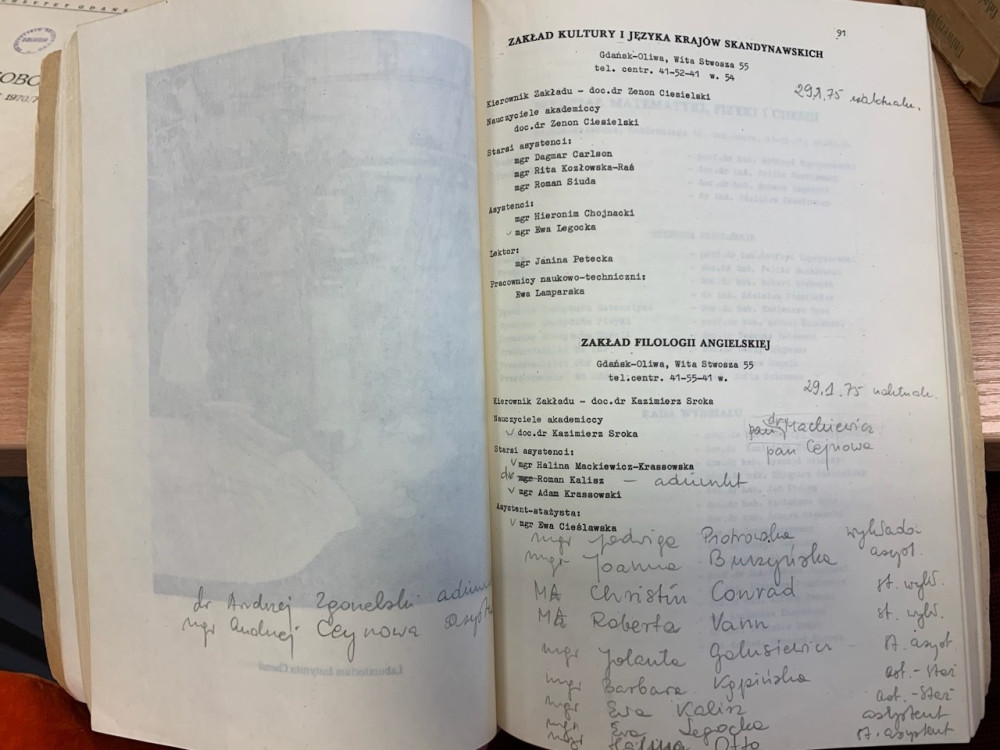 1970/7
dr Andrzej Zgorzelski
mgr Andrzej Ceynowa
Laboratorium Instytutu Chemii
91
ZAKŁAD KULTURY I JĘZYKA KRAJÓW SKANDYNAWSKICH
Gdańsk-Oliwa, Wita Stwosza 55
tel. centr. 41-52-41 w. 54
29.1.75 nieaktualn.
Kierownik Zakładu - doc.dr Zenon Ciesielski
Nauczyciele akademiccy
doc.dr Zenon Ciesielski
Starsi asystenci:
mgr Dagmar Carlson
mgr Rita Kozłowska-Raś
mgr Roman Siuda
Asystenci:
mgr Hieronim Chojnacki
mgr Ewa Legocka
Lektor:
mgr Janina Petecka
Pracownicy naukowo-techniczni:
Ewa Lamparska
ZAKŁAD FILOLOGII ANGIELSKIEJ
Gdańsk-Oliwa, Wita Stwosza 55
tel.centr. 41-55-41 w.
29.1.75
Kierownik Zakładu - doc.dr Kazimierz Sroka
Nauczyciele akademiccy
doc.dr Kazimierz Sroka
dr Mackiewicz
pan Cejnowa
Starsi asystenci:
mgr Halina Mackiewicz-Krassowska
dr mgr Roman Kalisz — adiunkt
mgr Adam Krassowski
Asystent-stażysta:
mgr Ewa Cieślawska
mgr Jadwiga Piotrowska
mgr Joanna Burzyńska asyst.
MA Christin Conrad st. wykł.
MA Roberta Vann st. wykł.
mgr Jolanta Galusiewicz st. asyst
mgr Barbara Kąpińska ast.-staż
mgr Ewa Kalisz ast.-staż
mgr Ewa Legocka asystent
mgr Halina Otto st. asystent